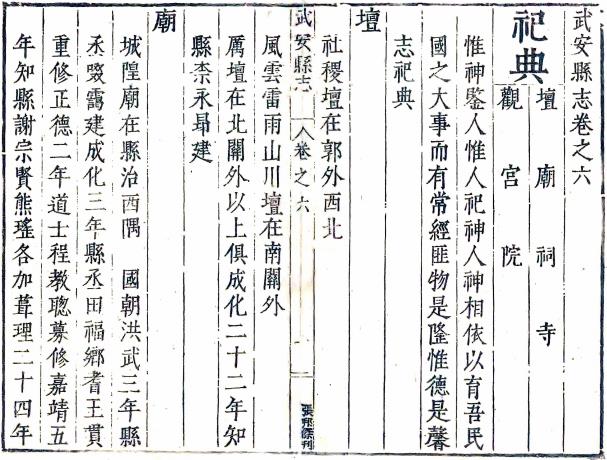 武安縣志卷之六
祀典
壇 廟 祠 寺
觀 宮 院
惟神鑒人惟人祀神人神相依以育吾民
國之大事而有常經匪物是隆惟德是馨
志祀典
壇
社稷壇在郭外西北
武安縣志 卷之六
風雲雷雨山川壇在南關外
厲壇在北關外以上俱成化二十二年知
縣永昻建
廟
城隍廟在縣治西隅 國朝洪武三年縣
丞靄建成化三年縣丞田福鄉耆王貫
重修正德二年道士程教聰募修嘉靖五
年知縣謝宗賢熊瑤各加葺理二十四年